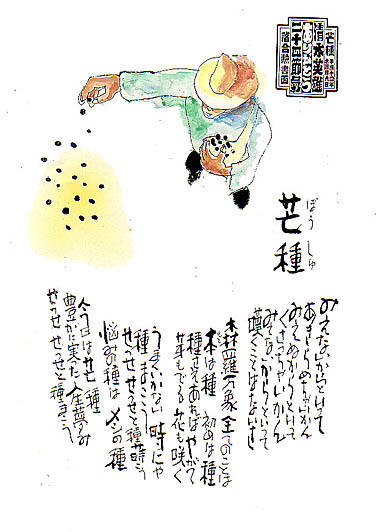 芒種
ぼうしゅ
芒種
二十四節気
みえないからといって
あきらめちゃいかん
みてぬからといって
くさっちゃいかん
みてないからといって
嘆くことはないさ
森羅万象全てのことは
本は種 初めは種
種さえあればやがて
芽もでる 花も咲く
うまくいかない時にゃ
種まこう
せっせせっせと種蒔こう
悩みの種は メシの種
今日は芒種
豊かに実った人生夢み
せっせせっせと種まこう